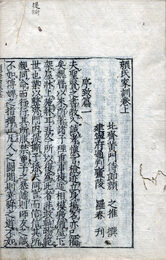 顏氏家訓卷上
北齊黃門侍郎顏之推 撰
建寧府通判廬陵 羅春 刊
序致篇一
夫聖賢之書教人誠孝慎言檢迹立身揚名亦已
備矣魏晉以來所著諸子理重事複遞相模斆猶屋下
架屋牀上施牀耳吾今所以復為此者非敢軌物範
世也業以整齊門內提撕子孫夫同言而信信其所
親同命而行行其所服禁童子之暴謔則師友之誡
不如傅婢之指揮止凡人之鬬鬩則堯舜之道不